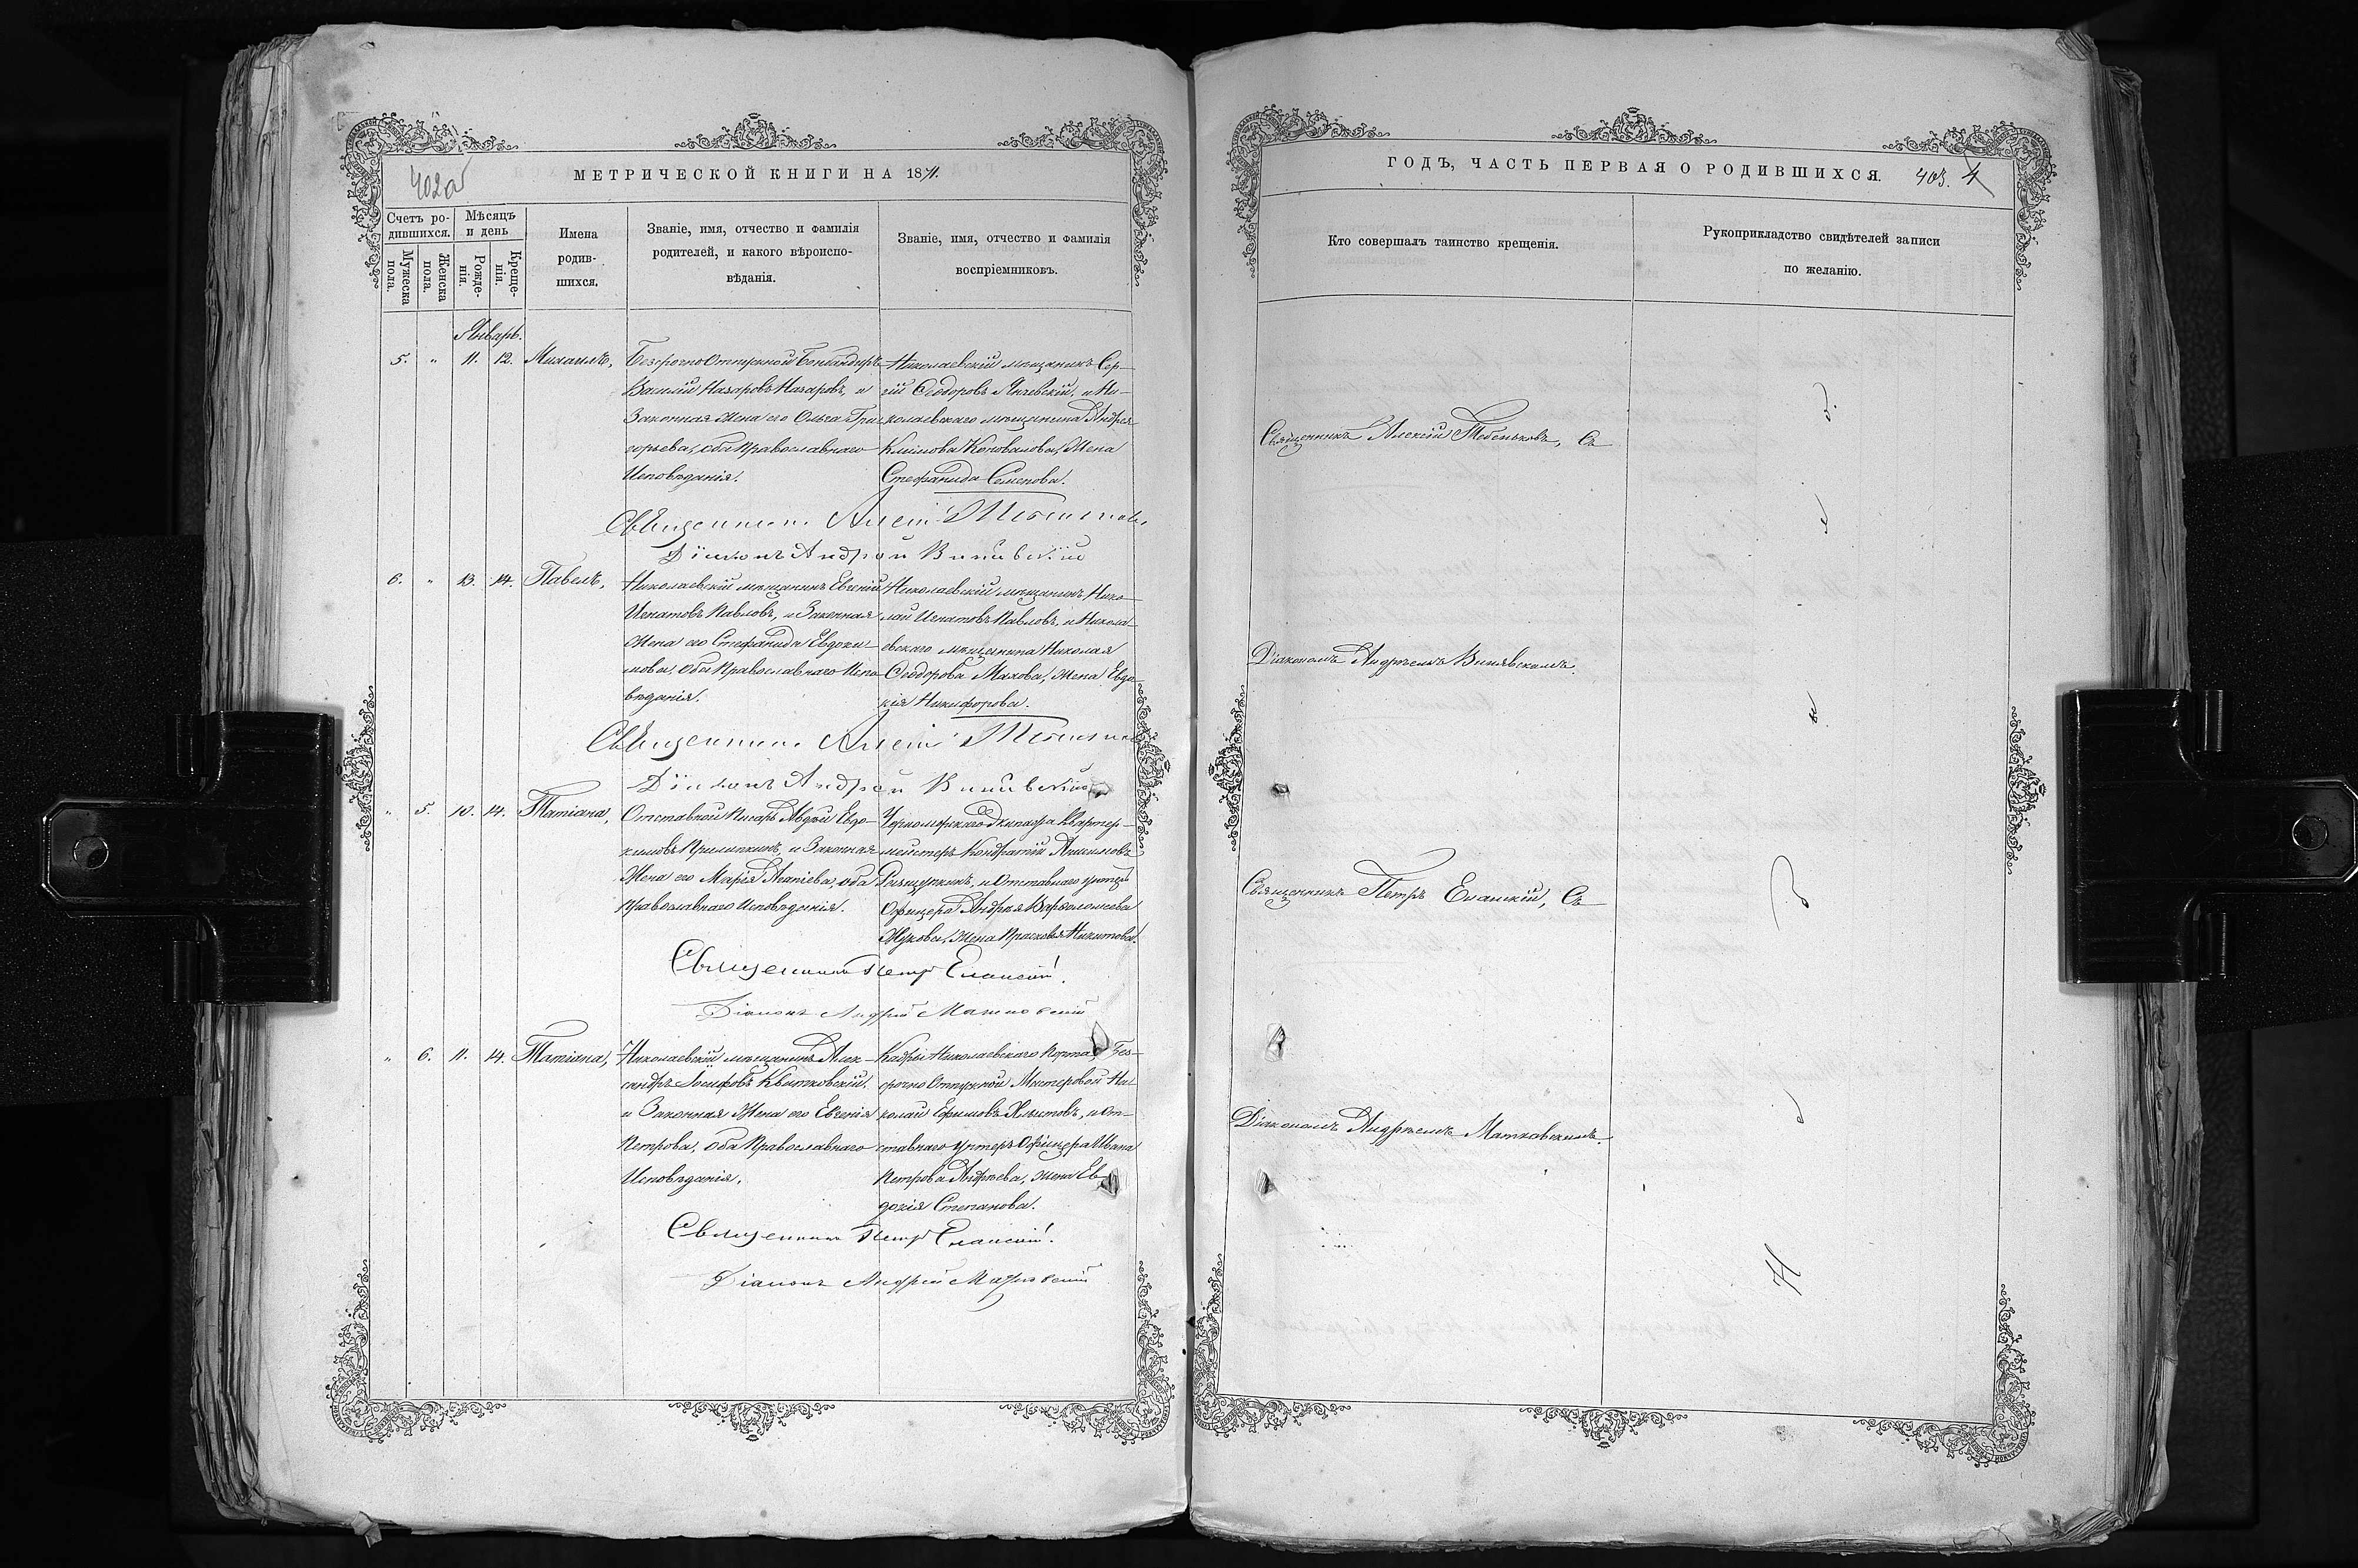 402об
МЕТРИЧЕСКОЙ КНИГИ НА 1871.
Счетъ ро-
дившихся.
Мѣсяцъ
и день
Мужеска
пола.
Женска
пола.
Рожде-
нія.
Креще-
нія.
Имена
родив-
шихся.
Званіе, имя, отчество и фамилія
родителей, и какого вѣроиспо-
вѣданія.
Званіе, имя, отчество и фамилія
воспріемниковъ.
Январь.
5. " 11. 12. Михаилъ,
Безсрочно Отпускной Бомбандиръ
Василій Назаровъ Назаровъ, и
Законная Жена его Ольга Гри-
горьева, оба Православнаго
Исповѣданія.
Николаевскій мѣщанинъ Сер-
гій Ѳеодоровъ Янчевскій, и Ни-
колаевскаго мѣщанина Андрея
Климова Коновалова, Жена
Стефанида Семенова.
Священникъ Алексій Тебеньковъ
Діаконъ Андрей Виневскій
6. " 13. 14. Павелъ,
Николаевскій мѣщанинъ Евгеній
Игнатовъ Павловъ, и Законная
Жена его Стефанида Евдоки-
мова, оба Православнаго Испо-
вѣданія.
Николаевскій мѣщанинъ Нико-
лай Игнатовъ Павловъ, и Никола-
евскаго мѣщанина Николая
Ѳеодорова Махова, Жена Евдо-
кія Никифорова.
Священникъ Алексій Тебеньковъ
Діаконъ Андрей Виневскій
" 5. 10. 14. Татіана,
Отставной Писарь Авдѣй Евдо-
кимовъ Прилипкинъ, и Законная
Жена его Марія Ананіева, оба
Православнаго Исповѣданія.
Черноморскаго Экипажа Квартер-
мейстеръ Кондратій Акимовъ
и Отставнаго унтеръ
Офицера Андрея Варѳоломеева
Жукова, Жена Прасковья Никитова.
Священникъ Петръ Еланскій.
Діаконъ Андрей Матковскій
" 6. 11. 14. Татіана,
Николаевскій мѣщанинъ Алек-
сандръ Іосифовъ Квятковскій,
и Законная Жена его Евгенія
Петрова, оба Православнаго
Исповѣданія.
Кадры Николаевскаго Порта, Без-
срочно Отпускной Мастеровой Ни-
колай Ефимовъ и От-
ставнаго унтеръ Офицера Ивана
Петрова Андреева, жена Ев-
докія Степанова.
Священникъ Петръ Еланскій.
Діаконъ Андрей Матковскій
ГОДЪ, ЧАСТЬ ПЕРВАЯ О РОДИВШИХСЯ.
403. 4
Кто совершалъ таинство крещенія.
Рукоприкладство свидѣтелей записи
по желанію.
Священникъ Алексій Тебеньковъ, Съ
Діакономъ Андреемъ Виневскимъ.
Священникъ Петръ Еланскій, Съ
Діакономъ Андреемъ Матковскимъ.